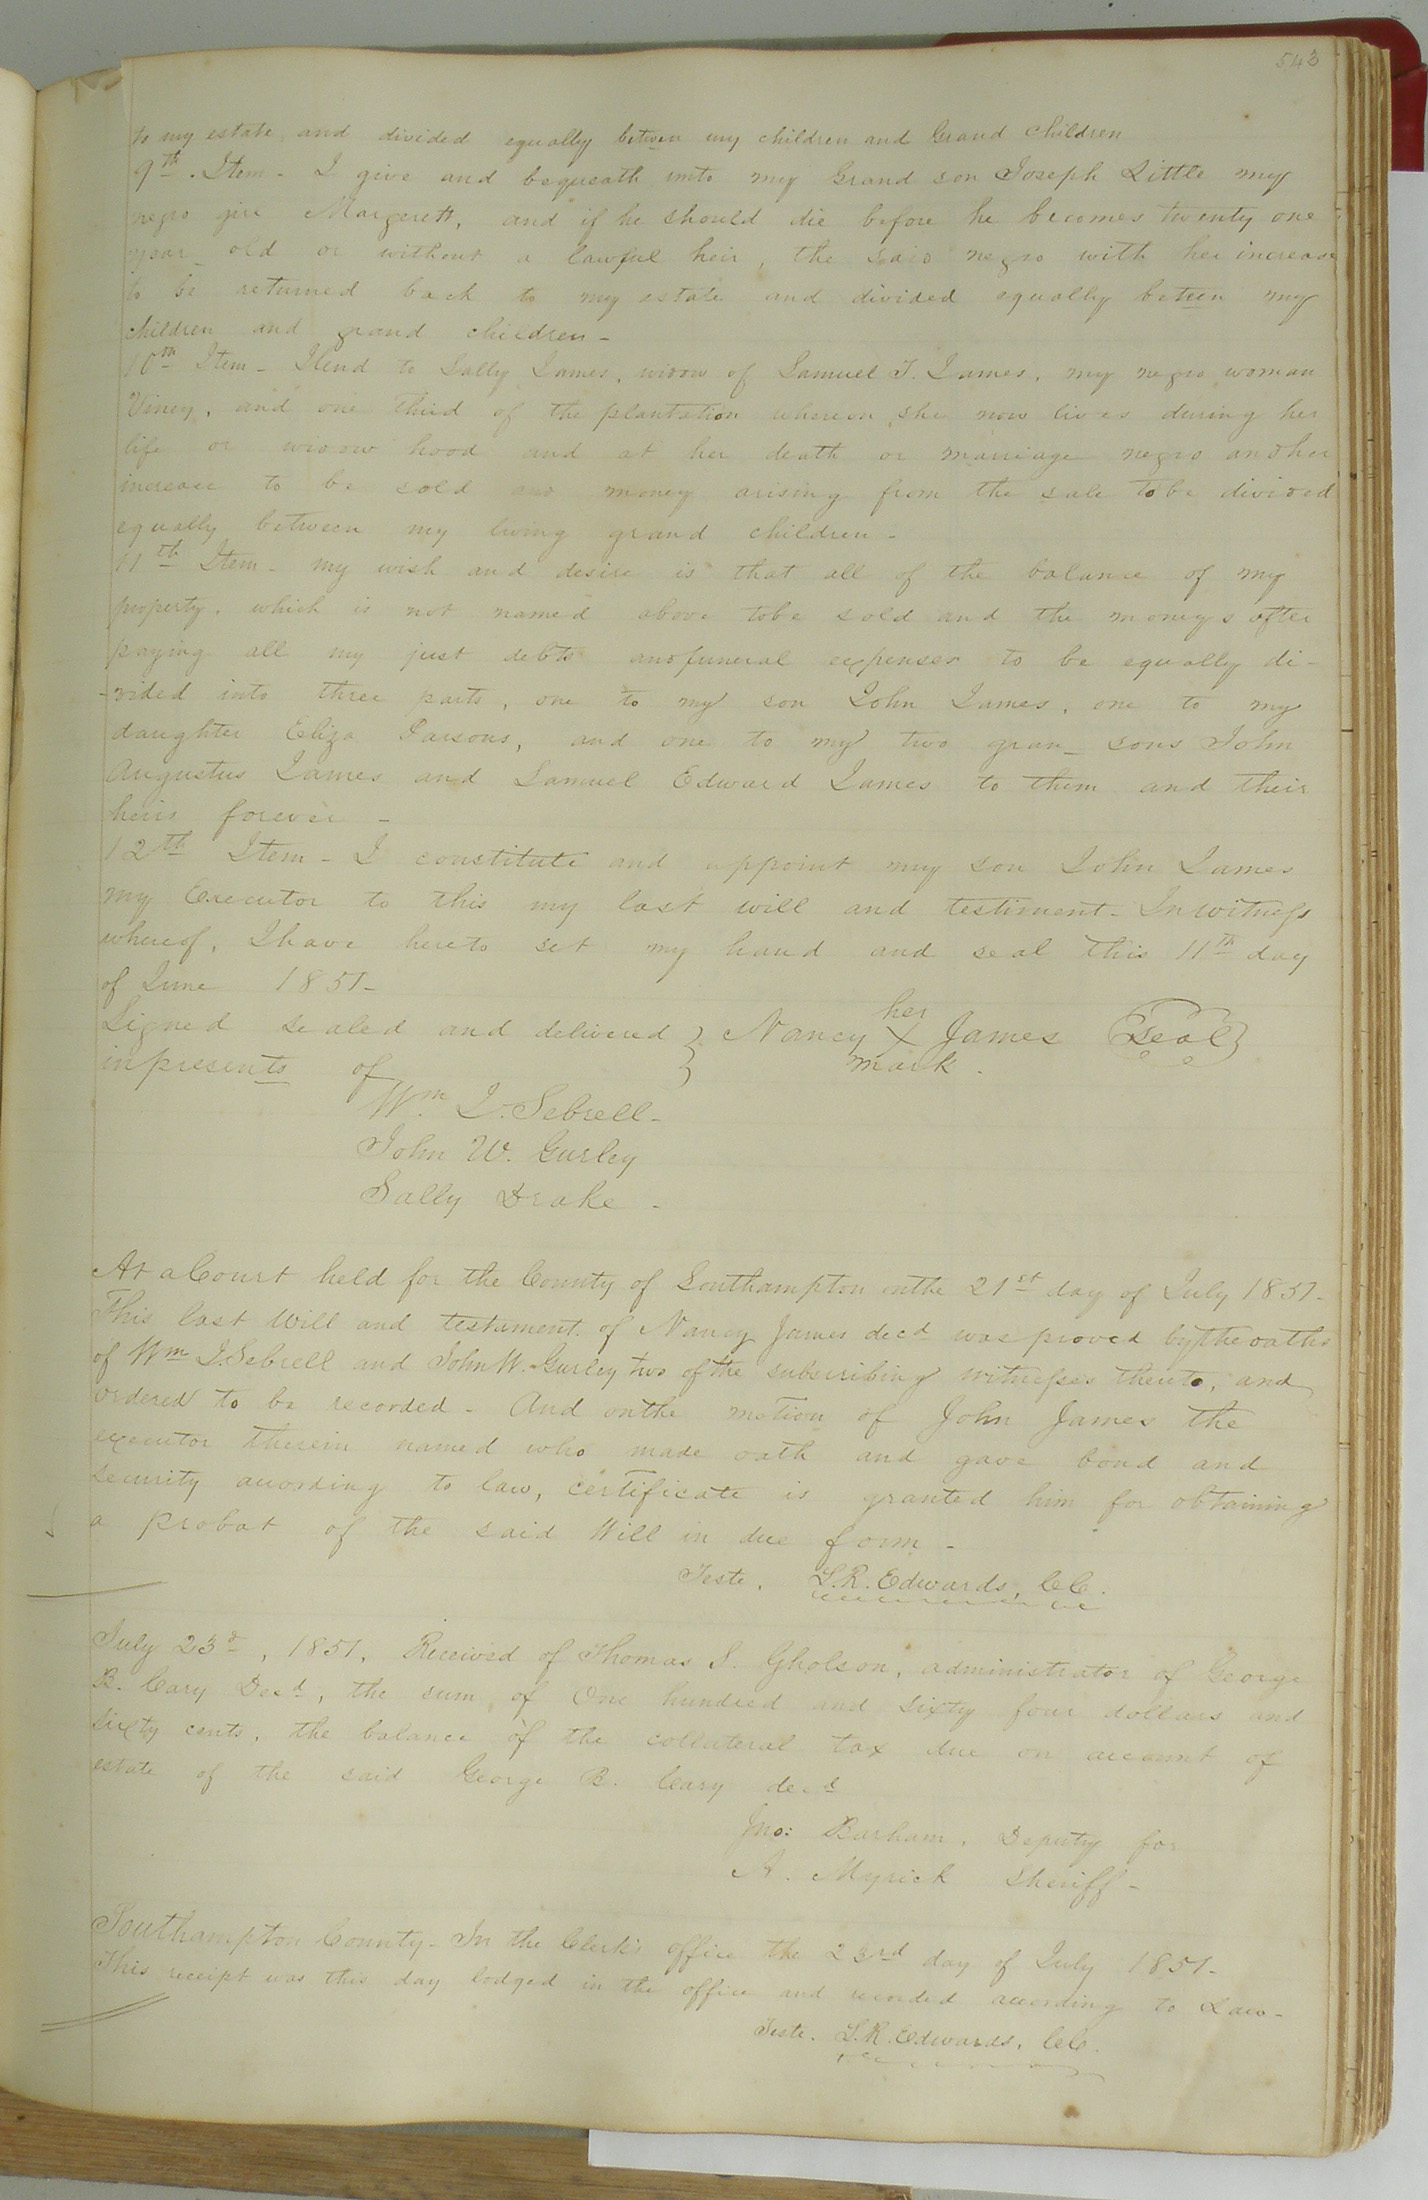 543
to my estate and divided equally betwen my children and Grand Children
9th. Item - I give and bequeath unto my Grand son Joseph Little my
negro girl Margerett, and if he should die before he becomes twenty one
year old or without a lawful heir, the said negro with her increase
to be returned back to my estate and divided equally beteen my
children and grand children -
10th Item - I lend to Sally James, widow of Samuel T. James, my negro woman
Viney, and one third of the plantation whereon she now lives during her
life or widow hood and at her death or marriage negro and her
increase to be sold and money arising from the sale to be divided
equally between my living grand children -
11th Item - my wish and desire is that all of the balance of my
property, which is not named above to be sold and the moneys after
paying all my just debts and funeral expenses to be equally di-
-vided into three parts, one to my son John James, one to my
daughter Eliza Parsons, and one to my two gran_ sons John
Augustus James and Samuel Edward James to them and their
heirs forever -
12th Item - I constitute and appoint my son John James
my Executor to this my last will and testiment - In witness
whereof, I have hereto set my hand and seal this 11th day
of June 1851 -
Signed sealed and delivered } Nancy her X mark James (Seal)
in presents of
Wm. J. Sebrell -
John W. Gurley
Sally Drake -
At a Court held for the County of Southampton on the 21st day of July 1851 -
This last Will and testament of Nancy James decd was proved by the oaths
of Wm J. Sebrell and John W. Gurley two of the subscribing witnesses thereto, and
ordered to be recorded - And on the motion of John James the
executor therein named who made oath and gave bond and
security according to law, certificate is granted him for obtaining
a probat of the said Will in due form -
Teste, L. R. Edwards, C.C.
July 23d, 1851, Received of Thomas S. Gholson, administrator of George
B. Cary Decd, the sum of One hundred and sixty four dollars and
sixty cents, the balance of the collateral tax due on account of
estate of the said George B. Cary decd
Jno: Barham, Deputy for
A. Myrick Sheriff -
Southampton County - In the Clerk's office the 23rd day of July 1851 -
This receipt was this day lodged in the office and recorded according to Law -
Teste. L. R. Edwards, C.C.